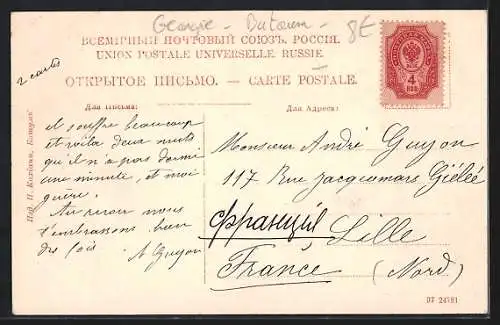 Georgie - Batoum - 8€
ВСЕМІРНЫЙ ПОЧТОВЫЙ СОЮЗЪ. РОССІЯ.
UNION POSTALE UNIVERSELLE. RUSSIE.
ОТКРЫТОЕ ПИСЬМО. — CARTE POSTALE.
2 cartes
Для Письма:
Для Адреса:
4
КОП
il souffre beaucoup
et voilà deux nuits
qu'il n'a pas dormi
une minute, et moi
guère.
Au revoir nous
t'embrassons bien
des fois
A Guyon
Monsieur André Guyon
117 Rue Jacquemars Giélée
Франція Lille
France (Nord)
Изд. Батумъ
07 24781